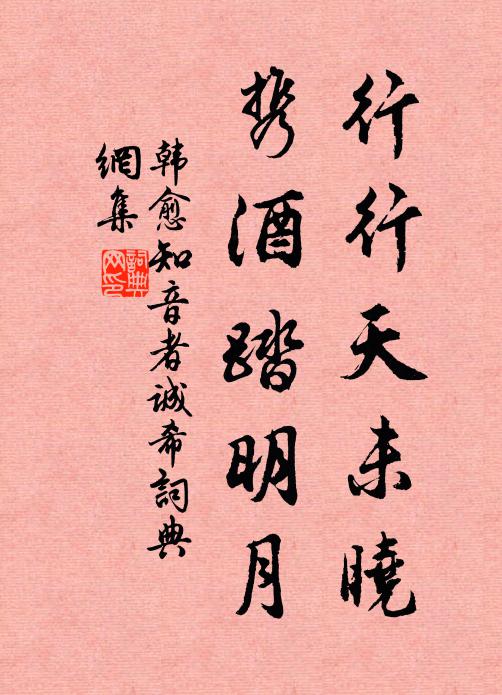 行行天未曉
携酒踏明月
韓愈知音者誠希詞典
網集
詞典
网印